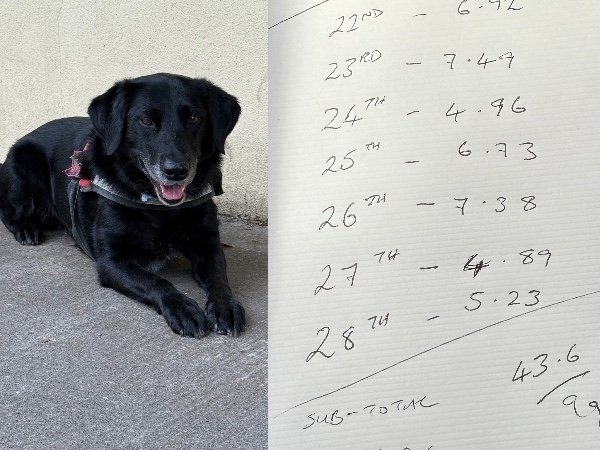 22ND - 6.92
23RD - 7.49
24TH - 4.96
25TH - 6.73
26TH - 7.38
27TH - 4.89
28TH - 5.23
43.6
SUB-TOTAL